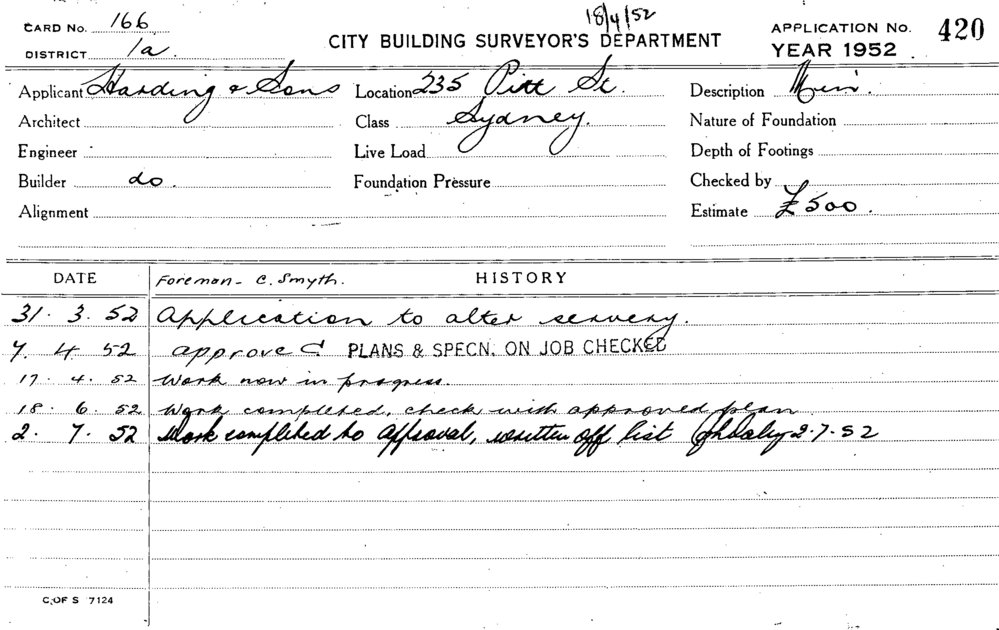 18/4/52
CARD No. 166
CITY BUILDING SURVEYOR'S DEPARTMENT
APPLICATION No. 420
DISTRICT 1a.
YEAR 1952
Applicant Harding & Sons Location 235 Pitt St. Description Min.
Architect Class Sydney. Nature of Foundation
Engineer Live Load Depth of Footings
Builder do. Foundation Pressure Checked by
Alignment Estimate £500.
DATE Foreman - C. Smyth. HISTORY
31. 3. 52 Application to alter servery.
7. 4. 52 approved PLANS & SPECN. ON JOB CHECKED
17. 4. 52 Work now in progress.
18. 6. 52 Work completed, check with approved plan
2. 7. 52 Work completed to approval, written off list 2-7-52
C. OF S 7124